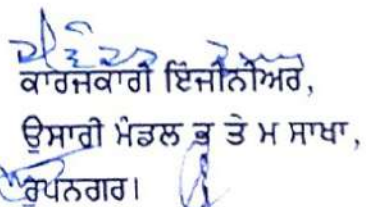 ਕਾਰਜਕਾਰੀ ਇੰਜੀਨੀਅਰ,
ਉਸਾਰੀ ਮੰਡਲ ਭ ਤੇ ਮ ਸਾਖਾ,
ਰੂਪਨਗਰ।